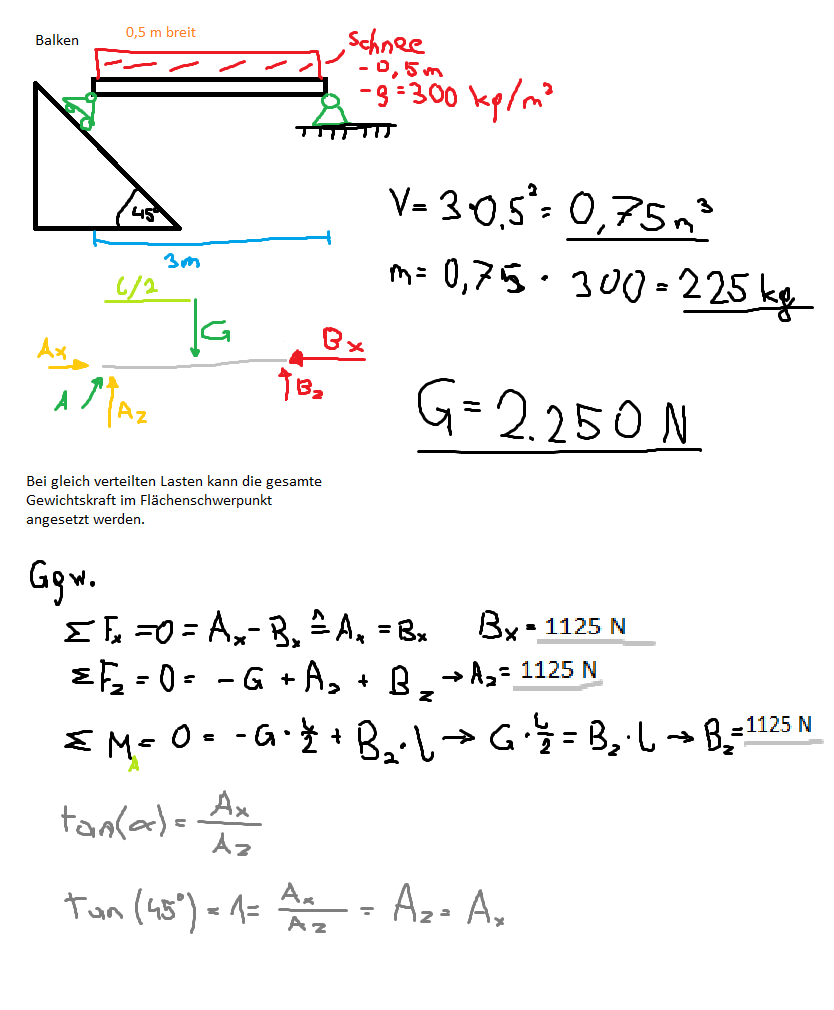 Balken
0,5 m breit
Schnee
- 0,5m
- ρ = 300 kg/m³
45°
3m
V = 3·0,5² = 0,75 m³
m = 0,75 · 300 = 225 kg
L/2
G
Ax
Bx
A
Az
Bz
G = 2.250 N
Bei gleich verteilten Lasten kann die gesamte
Gewichtskraft im Flächenschwerpunkt
angesetzt werden.
Ggw.
Σ Fx = 0 = Ax - Bx ≙ Ax = Bx Bx = 1125 N
Σ Fz = 0 = - G + Az + Bz → Az = 1125 N
Σ MA = 0 = - G · L/2 + Bz · l → G · L/2 = Bz · L → Bz = 1125 N
tan(α) = Ax/Az
tan (45°) = 1 = Ax/Az = Az = Ax